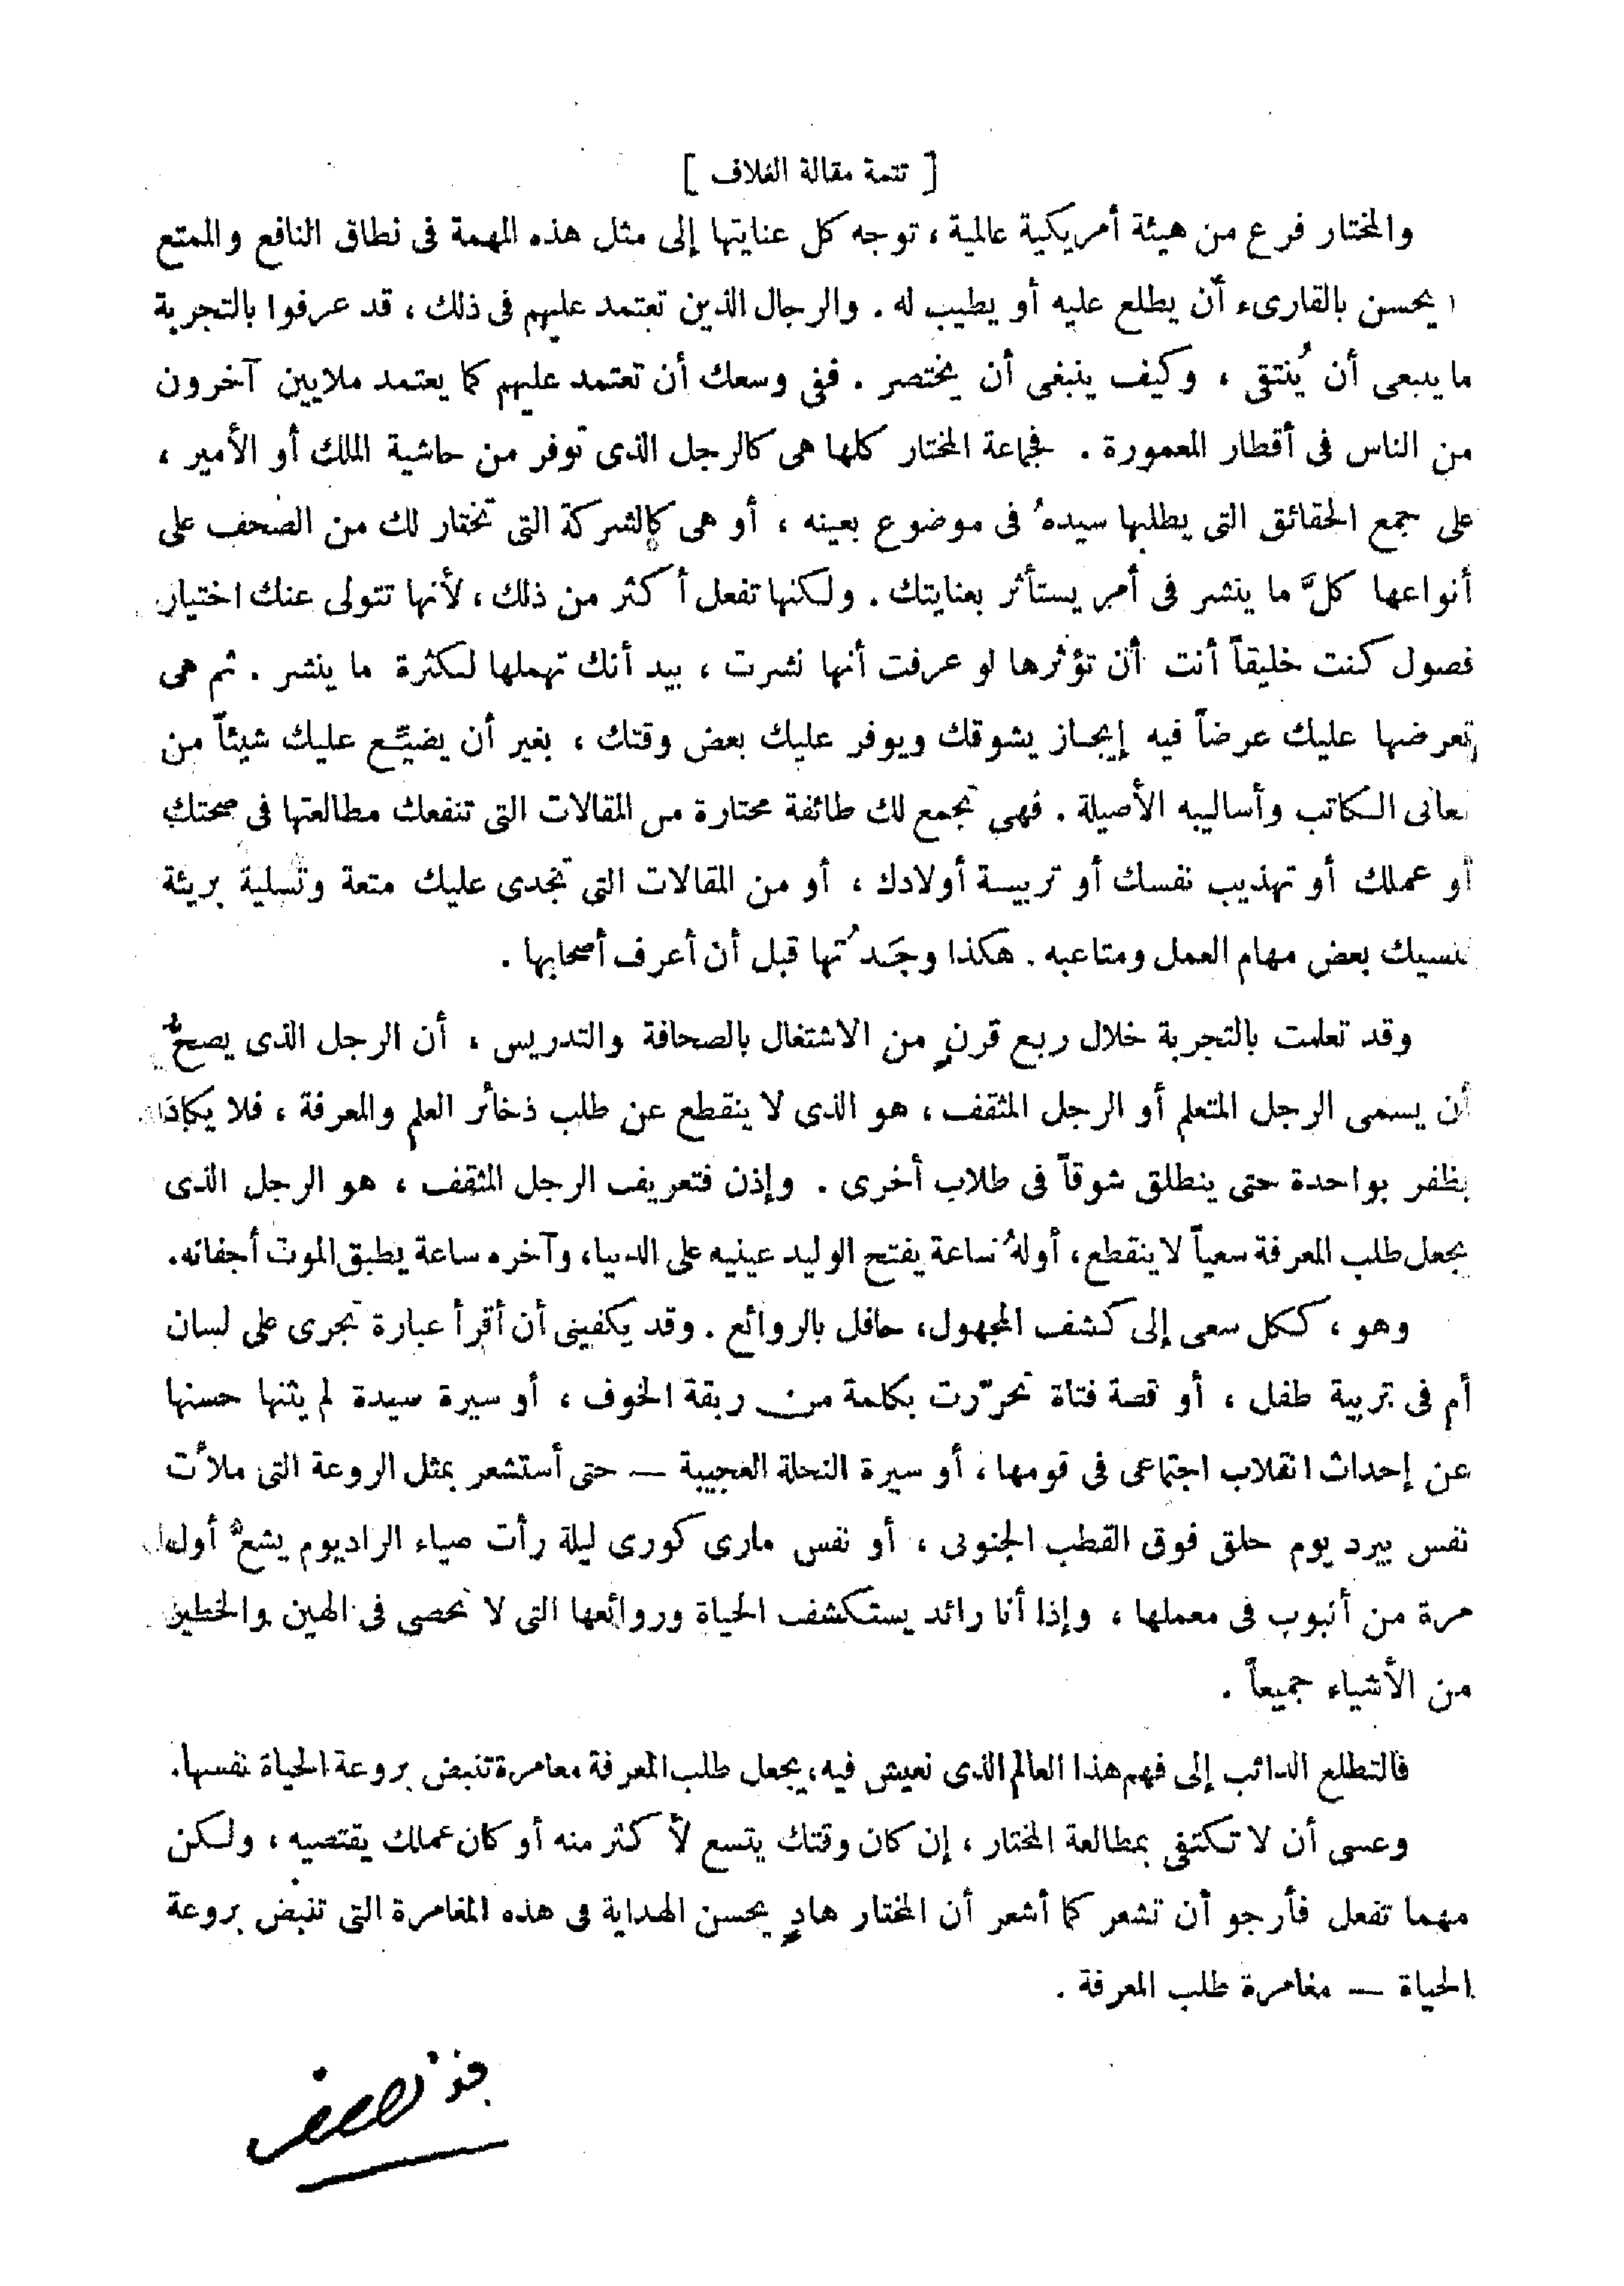 [ تتمة مقالة الغلاف ]
والمختار فرع من هيئة أمريكية عالمية ، توجه كل عنايتها إلى مثل هذه المهمة فى نطاق النافع والممتع
يحسن بالقارىء أن يطلع عليه أو يطيب له . والرجال الذين تعتمد عليهم فى ذلك ، قد عرفوا بالتجربة
ما ينبغى أن يُنتقى ، وكيف ينبغى أن يختصر . ففى وسعك أن تعتمد عليهم كما يعتمد ملايين آخرون
من الناس فى أقطار المعمورة . فجماعة المختار كلها هى كالرجل الذى توفر من حاشية الملك أو الأمير ،
على جمع الحقائق التى يطلبها سيدهُ فى موضوع بعينه ، أو هى كالشركة التى تختار لك من الصحف على
أنواعها كلَّ ما ينشر فى أمر يستأثر بعنايتك . ولكنها تفعل أكثر من ذلك ، لأنها تتولى عنك اختيار
فصول كنت خليقاً أنت أن تؤثرها لو عرفت أنها نشرت ، بيد أنك تهملها لكثرة ما ينشر . ثم هى
تعرضها عليك عرضاً فيه إيجاز يشوقك ويوفر عليك بعض وقتك ، بغير أن يضيِّع عليك شيئاً من
معانى الكاتب وأساليبه الأصيلة . فهى تجمع لك طائفة مختارة من المقالات التى تنفعك مطالعتها فى صحتك
أو عملك أو تهذيب نفسك أو تربيـة أولادك ، أو من المقالات التى تجدى عليك متعة وتسلية بريئة
تنسيك بعض مهام العمل ومتاعبه . هكذا وجَدتُها قبل أن أعرف أصحابها .
وقد تعلمت بالتجربة خلال ربع قرنٍ من الاشتغال بالصحافة والتدريس ، أن الرجل الذى يصحُّ
أن يسمى الرجل المتعلم أو الرجل المثقف ، هو الذى لا ينقطع عن طلب ذخائر العلم والمعرفة ، فلا يكاد
يظفر بواحدة حتى ينطلق شوقاً فى طلاب أخرى . وإذن فتعريف الرجل المثقف ، هو الرجل الذى
يجعل طلب المعرفة سعياً لا ينقطع ، أولهُ ساعة يفتح الوليد عينيه على الدنيا ، وآخره ساعة يطبق الموت أجفانه .
وهو ، ككل سعى إلى كشف المجهول ، حافل بالروائع . وقد يكفينى أن أقرأ عبارة تجرى على لسان
أم فى تربية طفل ، أو قصة فتاة تحرّرت بكلمة من ربقة الخوف ، أو سيرة سيدة لم يثنها حسنها
عن إحداث انقلاب اجتماعى فى قومها ، أو سيرة النحلة العجيبة — حتى أستشعر بمثل الروعة التى ملأت
نفس بيرد يوم حلق فوق القطب الجنوبى ، أو نفس مارى كورى ليلة رأت ضياء الراديوم يشعُّ أول
مرة من أنبوب فى معملها ، وإذا أنا رائد يستكشف الحياة وروائعها التى لا تحصى فى الهين والخطير
من الأشياء جميعاً .
فالتطلع الدائب إلى فهم هذا العالم الذى نعيش فيه ، يجعل طلب المعرفة مغامرة تنبض بروعة الحياة نفسها .
وعسى أن لا تكتفى بمطالعة المختار ، إن كان وقتك يتسع لأكثر منه أو كان عملك يقتضيه ، ولكن
مهما تفعل فأرجو أن تشعر كما أشعر أن المختار هادٍ يحسن الهداية فى هذه المغامرة التى تنبض بروعة
الحياة — مغامرة طلب المعرفة .